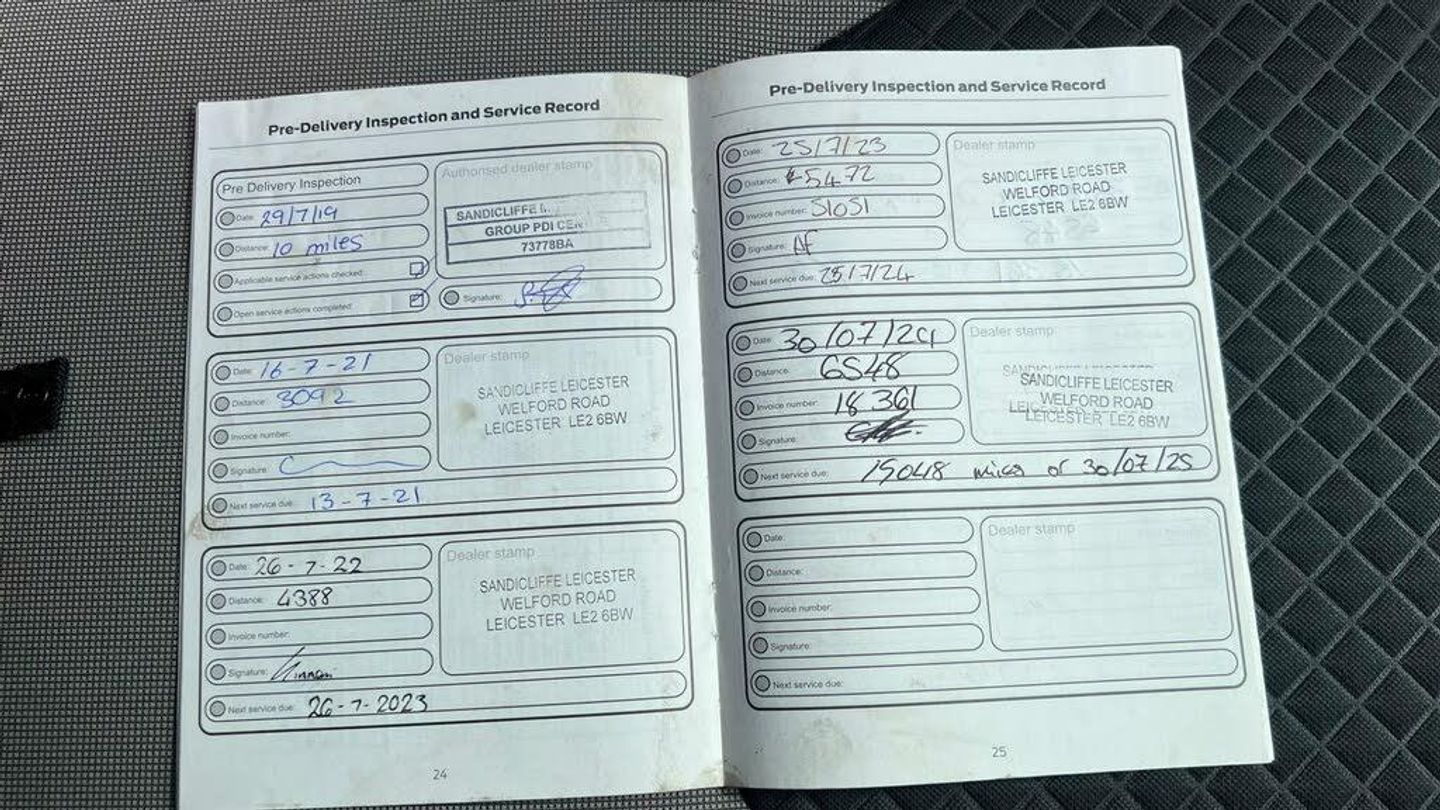 Pre-Delivery Inspection and Service Record
Pre Delivery Inspection
Date: 29/7/19
Distance: 10 miles
Applicable service actions checked:
Open service actions completed:
Authorised dealer stamp
SANDICLIFFE
GROUP PDI CEN
73778BA
Signature:
Date: 16-7-21
Distance: 3092
Invoice number:
Signature:
Next service due: 13-7-21
Dealer stamp
SANDICLIFFE LEICESTER
WELFORD ROAD
LEICESTER LE2 6BW
Date: 26-7-22
Distance: 4388
Invoice number:
Signature:
Next service due: 26-7-2023
Dealer stamp
SANDICLIFFE LEICESTER
WELFORD ROAD
LEICESTER LE2 6BW
24
Pre-Delivery Inspection and Service Record
Date: 25/7/23
Distance: 5472
Invoice number: 51051
Signature: AF
Next service due: 25/7/24
Dealer stamp
SANDICLIFFE LEICESTER
WELFORD ROAD
LEICESTER LE2 6BW
Date: 30/07/24
Distance: 6548
Invoice number: 18361
Signature:
Next service due: 19048 miles or 30/07/25
Dealer stamp
SANDICLIFFE LEICESTER
WELFORD ROAD
LEICESTER LE2 6BW
Date:
Distance:
Invoice number:
Signature:
Next service due:
Dealer stamp
25